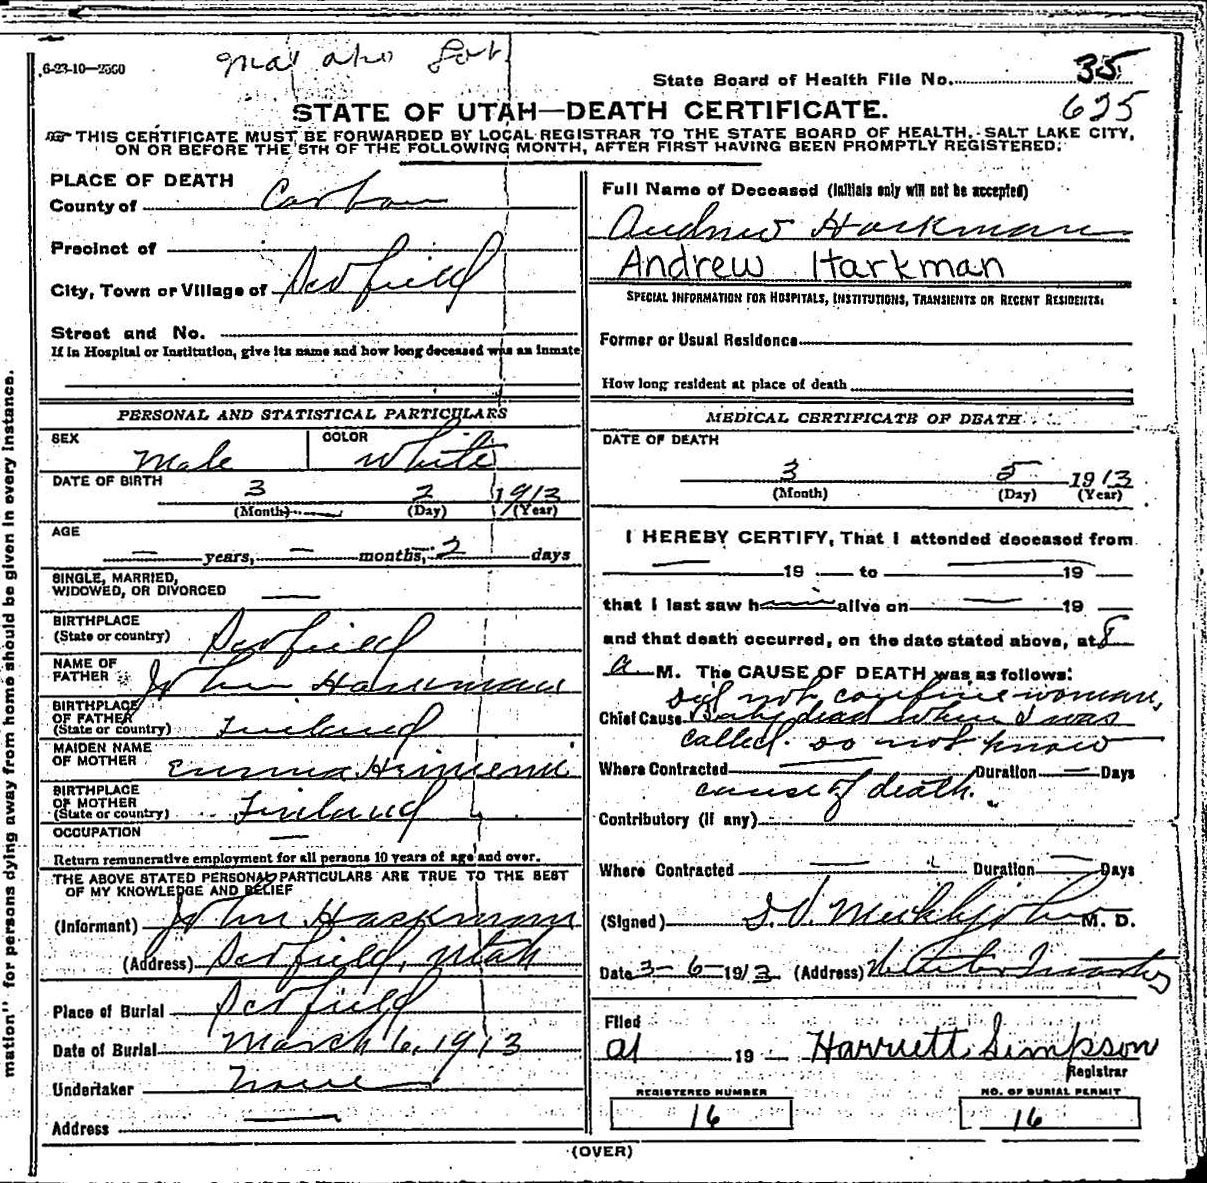 6-23-10—2500
State Board of Health File No. 35
625
STATE OF UTAH—DEATH CERTIFICATE.
THIS CERTIFICATE MUST BE FORWARDED BY LOCAL REGISTRAR TO THE STATE BOARD OF HEALTH, SALT LAKE CITY,
ON OR BEFORE THE 5TH OF THE FOLLOWING MONTH, AFTER FIRST HAVING BEEN PROMPTLY REGISTERED.
PLACE OF DEATH
County of Carbon
Precinct of
City, Town or Village of Scofield
Street and No.
If in Hospital or Institution, give its name and how long deceased was an inmate
PERSONAL AND STATISTICAL PARTICULARS
SEX Male COLOR White
DATE OF BIRTH
3 2 1913
(Month) (Day) (Year)
AGE
— years, — months, 2 days
SINGLE, MARRIED,
WIDOWED, OR DIVORCED —
BIRTHPLACE
(State or country) Scofield
NAME OF
FATHER John Harkman
BIRTHPLACE
OF FATHER
(State or country) Finland
MAIDEN NAME
OF MOTHER Emma
BIRTHPLACE
OF MOTHER
(State or country) Finland
OCCUPATION —
Return remunerative employment for all persons 10 years of age and over.
THE ABOVE STATED PERSONAL PARTICULARS ARE TRUE TO THE BEST
OF MY KNOWLEDGE AND BELIEF
(Informant) John Hackman
(Address) Scofield, Utah
Place of Burial Scofield
Date of Burial March 6, 1913
Undertaker None
Address —
Full Name of Deceased (Initials only will not be accepted)
Andrew Harkman
Andrew Harkman
SPECIAL INFORMATION FOR HOSPITALS, INSTITUTIONS, TRANSIENTS OR RECENT RESIDENTS.
Former or Usual Residence
How long resident at place of death
MEDICAL CERTIFICATE OF DEATH
DATE OF DEATH
3 5 1913
(Month) (Day) (Year)
I HEREBY CERTIFY, That I attended deceased from
— 19 — to — 19
that I last saw h— alive on — 19
and that death occurred, on the date stated above, at 8
a M. The CAUSE OF DEATH was as follows:
did not confine woman,
Chief Cause Baby dead when I was
called. do not know
Where Contracted — Duration — Days
cause of death.
Contributory (if any)
Where Contracted — Duration — Days
(Signed) M. D.
Date 3-6-1913 (Address) Winter Quarters
Filed
at 19 — Harriett Simpson
Registrar
REGISTERED NUMBER
16
NO. OF BURIAL PERMIT
16
(OVER)
mation" for persons dying away from home should be given in every instance.